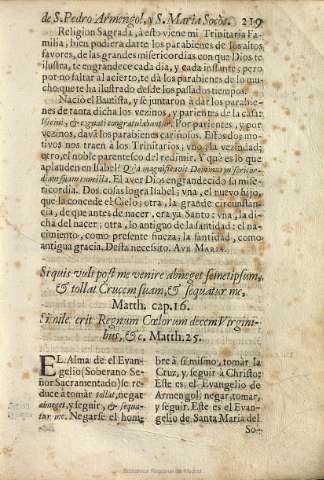 de S. Pedro Armengol, y S. Maria Socòs. 219
Religion Sagrada, à esto viene mi Trinitaria Fa-
milia, bien pudiera darte los parabienes de los altos
favores, de las grandes misericordias con que Dios te
ilustra, te engrandece cada dia, y cada instante; pero
por no faltar al acierto, te dà los parabienes de lo mu-
cho que te ha ilustrado desde los passados tiempos.
Naciò el Bautista, y se juntaron à dar los parabie-
nes de tanta dicha los vezinos, y parientes de la casa:
Vicini, & cognati congratulabantur. Por parientes, y por
vezinos, davã los parabienes cariñosos. Estos dos mo-
tivos nos traen à los Trinitarios; vno, la vezindad;
otro, el noble parentesco del redimir. Y què es lo que
aplauden en Isabel? Quia magnificavit Dominus misericor-
diam suam cum illa. El aver Dios engrandecido su mise-
ricordia. Dos cosas logra Isabel; vna, el nuevo hijo,
que la concede el Cielo; otra, la grande circunstan-
cia, de que antes de nacer, era ya Santo: vna, la di-
cha del nacer; otra, lo antiguo de la santidad: el na-
cimiento, como presente fineza; la santidad, como
antigua gracia. Desta necesito. AVE MARIA.
Si quis vult post me venire abneget semetipsum,
& tollat Crucem suam, & sequatur me,
Matth. cap. 16.
Simile erit Regnum Cœlorum decem Virgini-
bus, &c, Matth. 25.
EL Alma de el Evan-
gelio (Soberano Se-
ñor Sacramentado) se re-
duce à tomar tollat, negar
abneget, y seguir, & sequa-
tur me. Negarse el hom-
bre à sì mismo, tomar la
Cruz, y seguir à Christo:
Este es el Evangelio de
Armengol: negar, tomar,
y seguir. Este es el Evan-
gelio de Santa Maria del
So-
Biblioteca Regional de Madrid